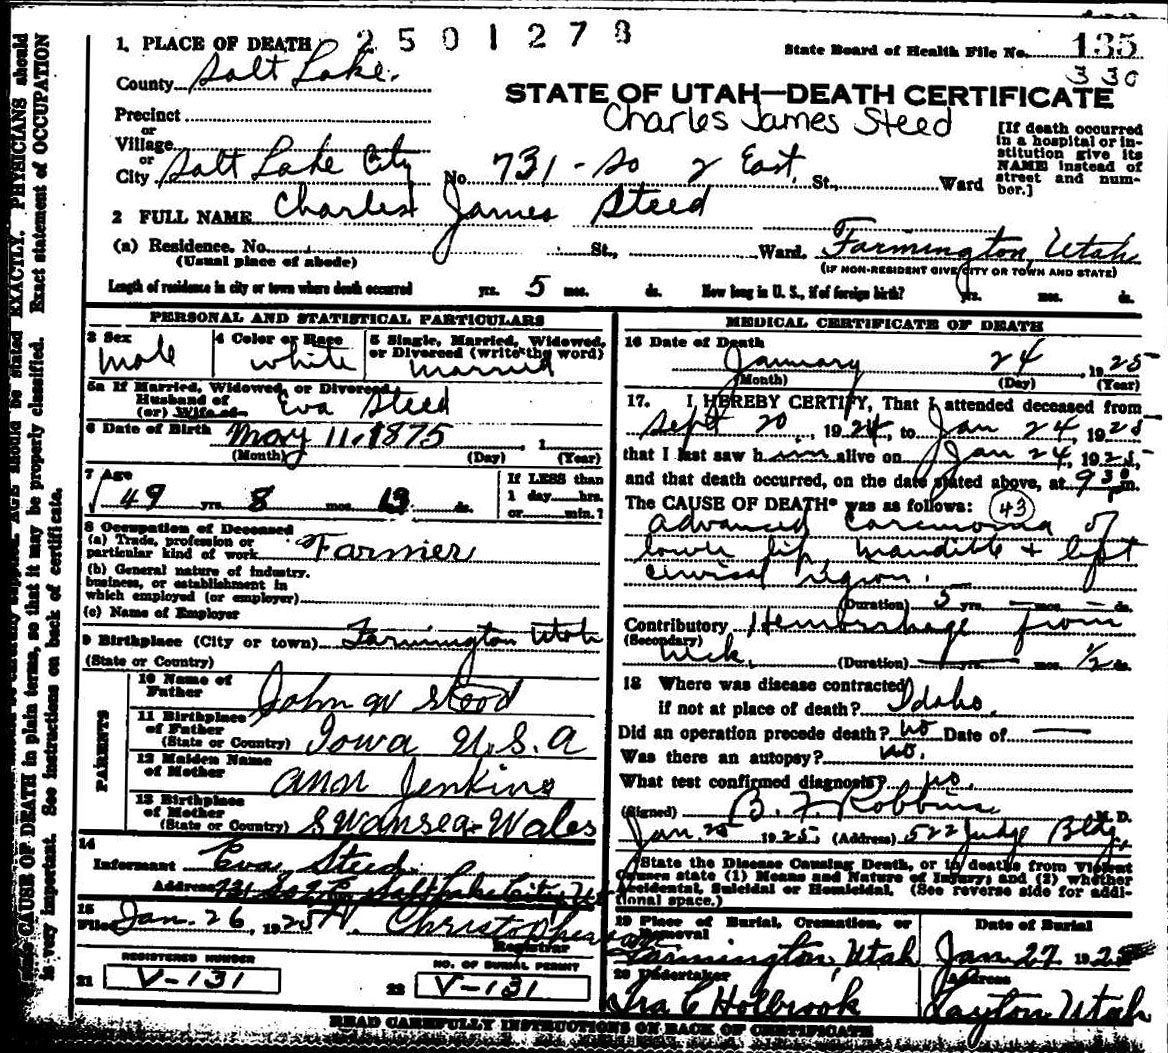 2501278
1. PLACE OF DEATH
State Board of Health File No. 135
330
County Salt Lake.
STATE OF UTAH—DEATH CERTIFICATE
Charles James Steed
Precinct
or
Village
or
City Salt Lake City No. 731 - So 2 East, St., Ward
[If death occurred
in a hospital or in-
stitution give its
NAME instead of
street and num-
ber.]
2 FULL NAME Charles James Steed
(a) Residence. No. St., Ward. Farmington, Utah
(Usual place of abode)
(IF NON-RESIDENT GIVE CITY OR TOWN AND STATE)
Length of residence in city or town where death occurred yrs. 5 mos. ds. How long in U. S., if of foreign birth? yrs. mos. ds.
PERSONAL AND STATISTICAL PARTICULARS
3 Sex
Male
4 Color or Race
White
5 Single, Married, Widowed,
or Divorced (write the word)
Married
5a If Married, Widowed, or Divorced
Husband of
(or) Wife of Eva Steed
6 Date of Birth May 11, 1875, 1
(Month) (Day) (Year)
7 Age
49 yrs. 8 mos. 13 ds.
If LESS than
1 day hrs.
or min.?
8 Occupation of Deceased
(a) Trade, profession or
particular kind of work Farmer
(b) General nature of industry,
business, or establishment in
which employed (or employer)
(c) Name of Employer
9 Birthplace (City or town) Farmington Utah
(State or Country)
PARENTS
10 Name of
Father John W Steed
11 Birthplace
of Father
(State or Country) Iowa U.S.A
12 Maiden Name
of Mother Ann Jenkins
13 Birthplace
of Mother
(State or Country) Swansea - Wales
14
Informant Eva Steed
Address 731 So 2 E Salt Lake City, Ut
15
Filed Jan. 26, 1925 Christopherson
Registrar
REGISTERED NUMBER
21 V-131
NO. OF BURIAL PERMIT
22 V-131
MEDICAL CERTIFICATE OF DEATH
16 Date of Death
January 24, 1925
(Month) (Day) (Year)
17. I HEREBY CERTIFY, That I attended deceased from
Sept 20, 1924, to Jan 24, 1925,
that I last saw him alive on Jan 24, 1925,
and that death occurred, on the date stated above, at 9 30 pm.
The CAUSE OF DEATH* was as follows: 43
advanced Carcinoma of
lower lip, mandible + left
cervical region.
(Duration) 5 yrs. — mos. — ds.
Contributory Hemorrhage from
(Secondary)
neck. (Duration) yrs. mos. 1/2 ds.
18 Where was disease contracted
if not at place of death? Idaho.
Did an operation precede death? no Date of
Was there an autopsy? no.
What test confirmed diagnosis? no.
(Signed) B. F. Robbins M. D.
Jan. 25 1925. (Address) 522 Judge Bldg.
*State the Disease Causing Death, or in deaths from Violent
Causes state (1) Means and Nature of Injury; and (2) whether
Accidental, Suicidal or Homicidal. (See reverse side for addi-
tional space.)
19 Place of Burial, Cremation, or
Removal
Farmington, Utah
Date of Burial
Jan. 27 1925
20 Undertaker
Ira C Holbrook
Address
Layton Utah
READ CAREFULLY INSTRUCTIONS ON BACK OF CERTIFICATE
EXACTLY. PHYSICIANS should
CAUSE OF DEATH in plain terms, so that it may be properly classified. Exact statement of OCCUPATION
is very important. See instructions on back of certificate.